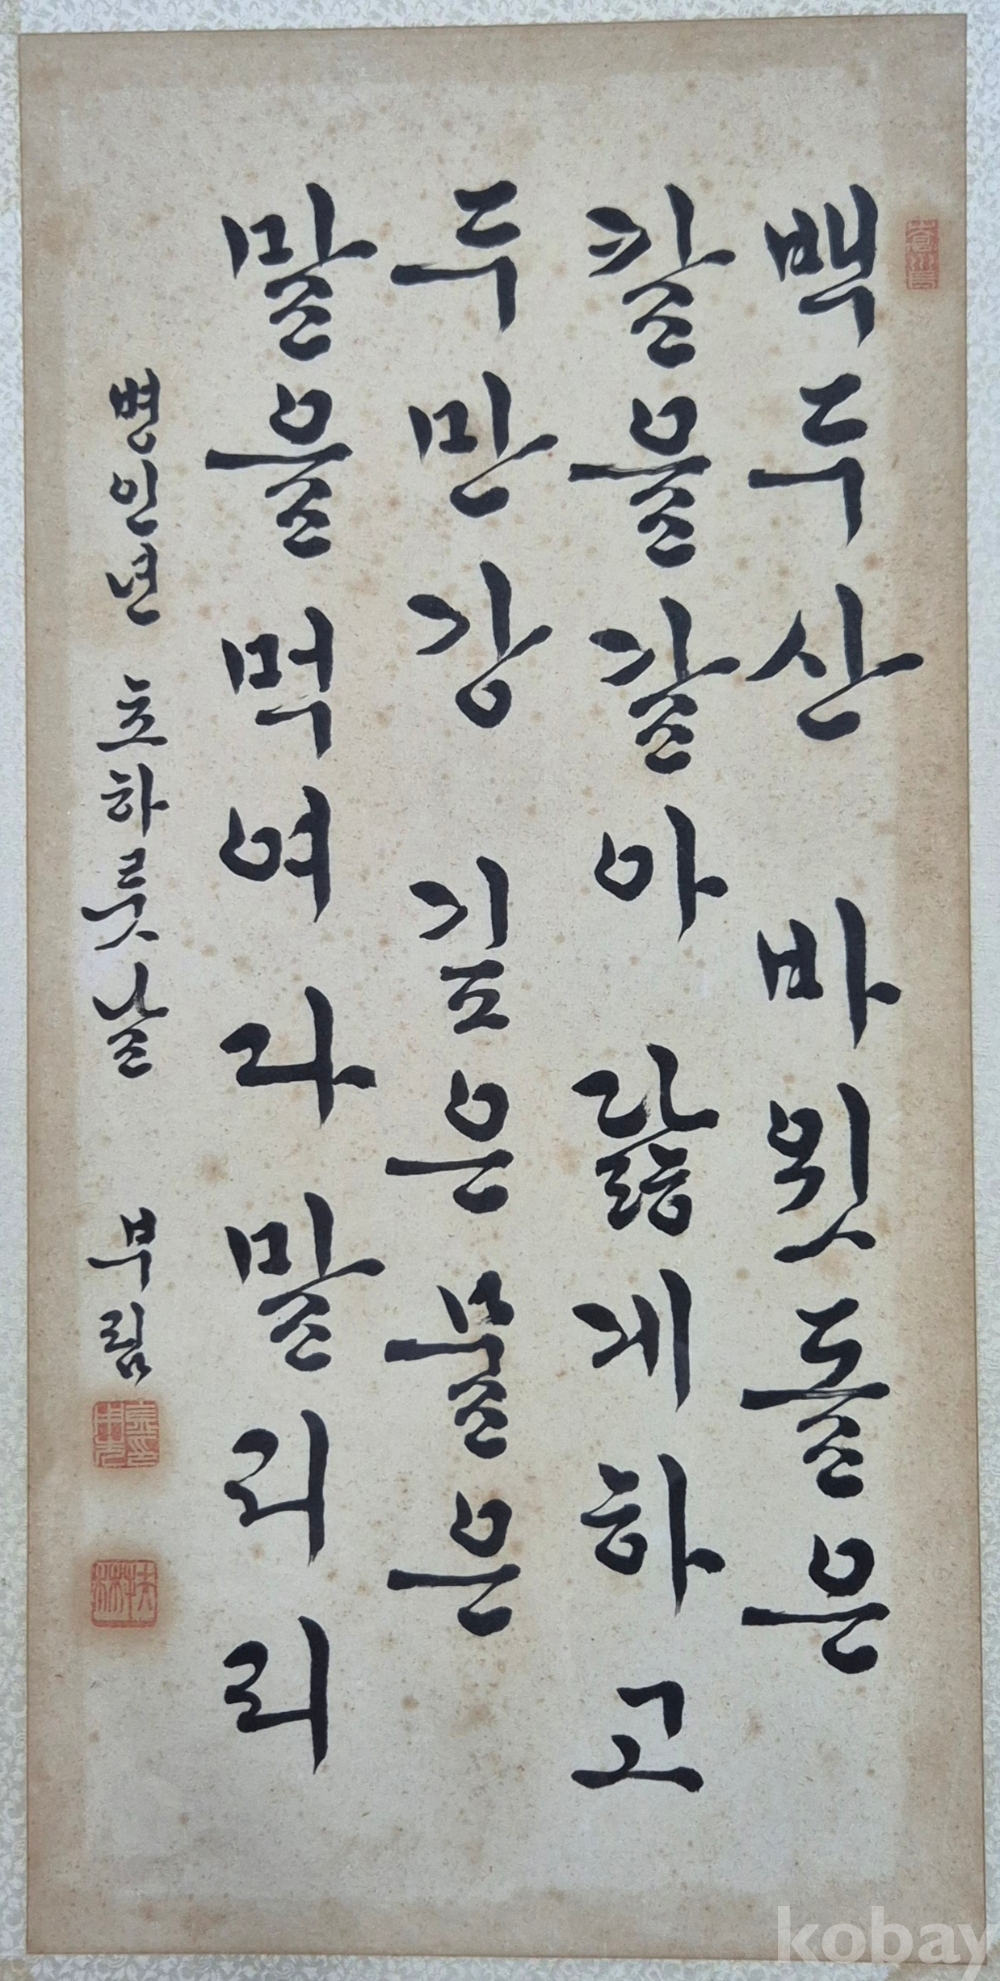 백두산 바윗돌은
칼을 갈아 닳게 하고
두만강 깊은 물은
말을 먹여 다 말리리
병인년 초하룻날 부림
kobay